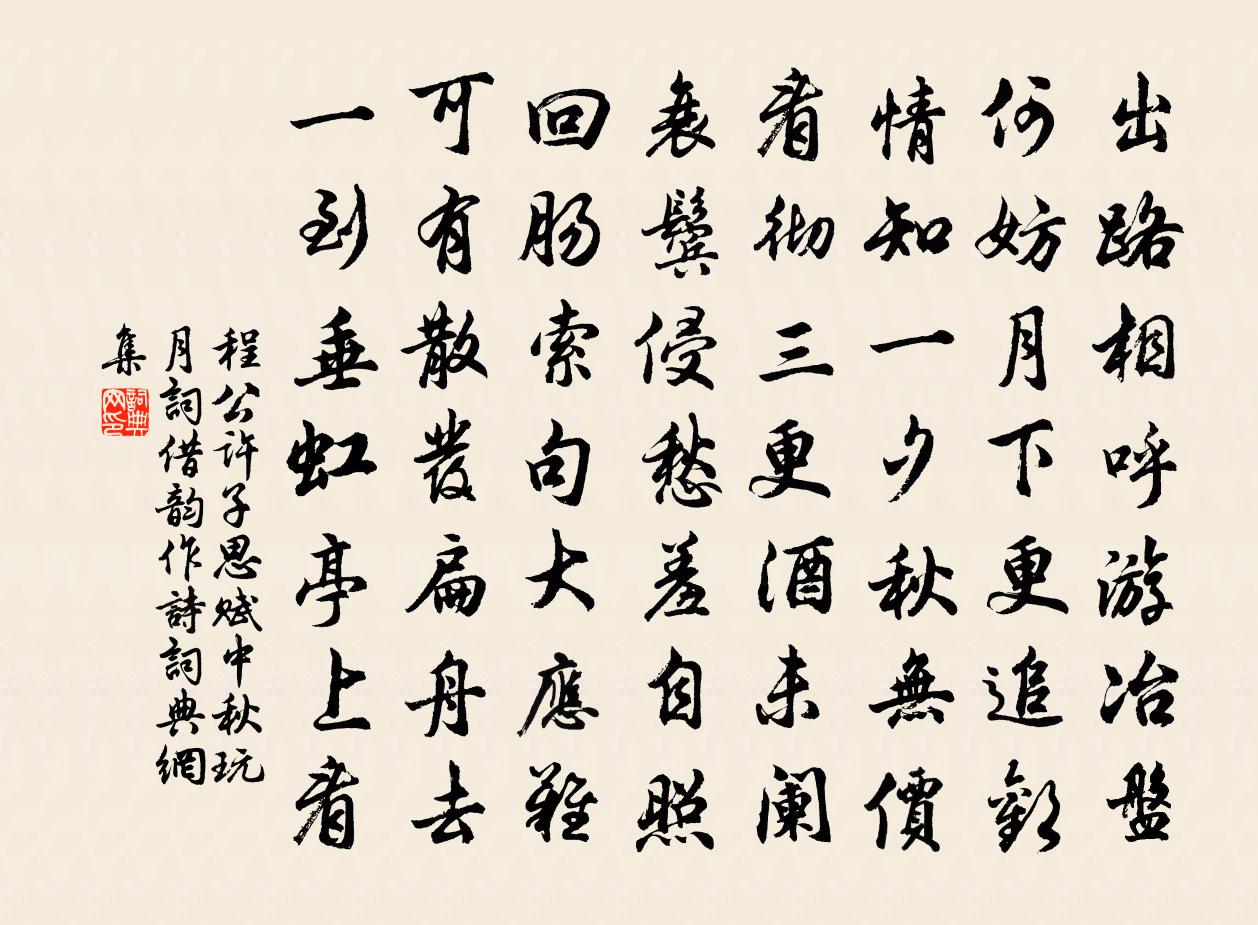 出路相呼游冶盤
何妨月下更追歡
情知一夕秋無價
看彻三更酒未阑
衰鬢侵愁羞自照
回肠索句大應難
可有散發扁舟去
一到垂虹亭上看
程公许子思赋中秋玩
月詞借韵作詩詞典網
集
詞典
网印